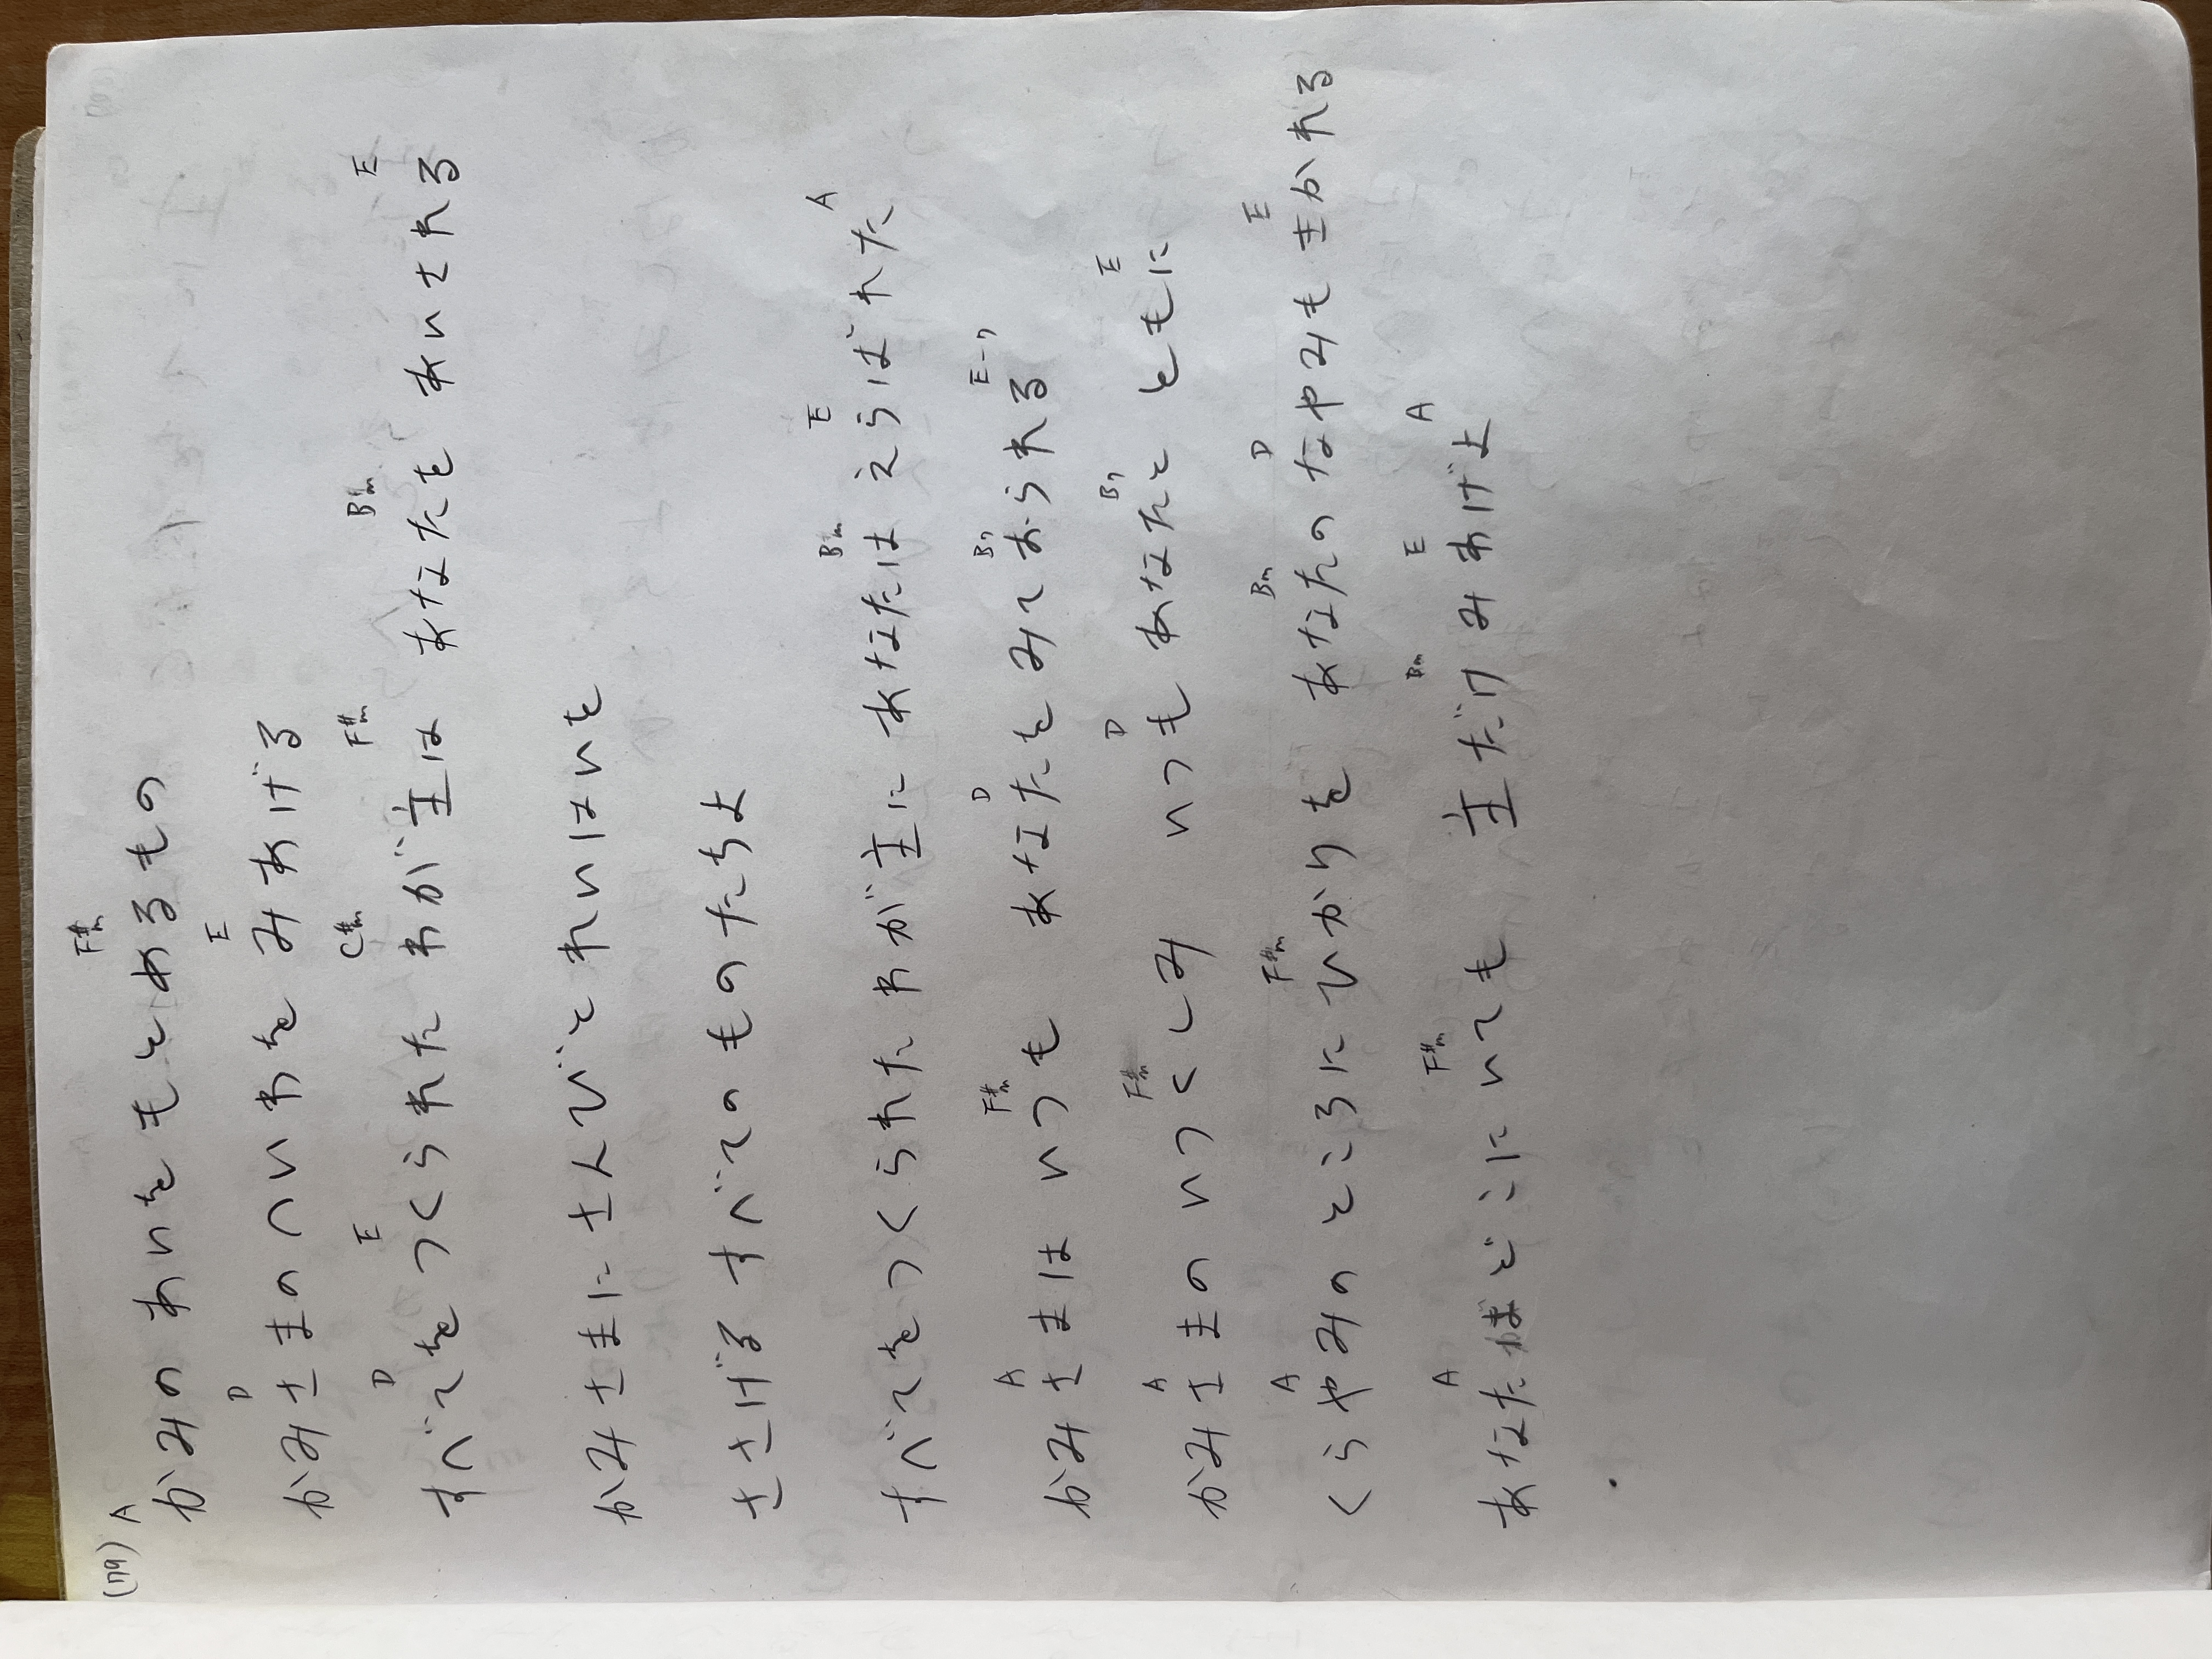 (79) A F#m
かみの あいを もとめるもの
D E
かみさまのへいわを みあげる
D E C#m F#m Bm E
すべてを つくられた わが主は あなたを あいされる
かみさまに さんびと れいはいを
ささげる すべてのものたちよ
Bm E A
すべてをつくられた わが主に あなたは えらばれた
A F#m D B7 E-7
かみさまは いつも あなたをみておられる
A F#m D B7 E
かみさまの いつくしみ いつも あなたと ともに
A F#m Bm D E
くらやみのところに ひかりを あなたの なやみも きかれる
A F#m Bm E A
あなたはどこに いても 主だけ みあげよ